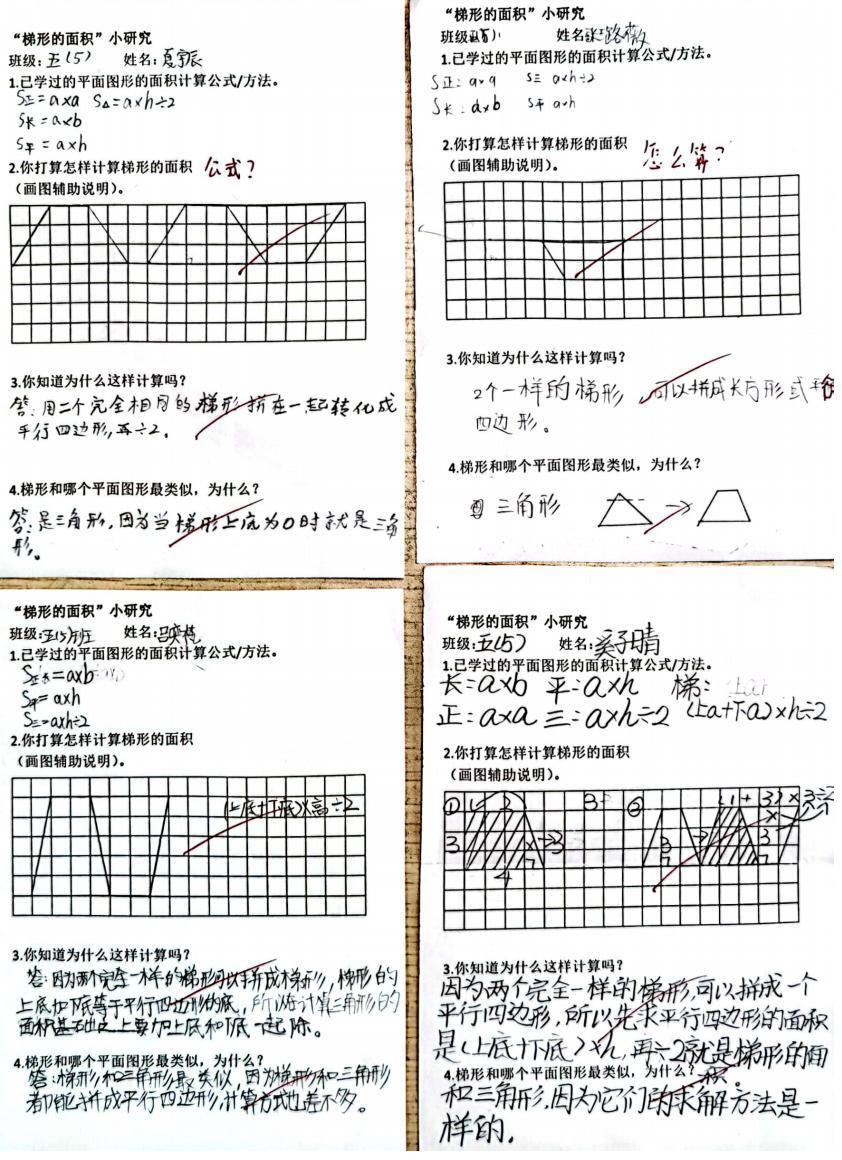 “梯形的面积”小研究
班级:五(5) 姓名:
1.已学过的平面图形的面积计算公式/方法。
S正=a×a S△=a×h÷2
S长=a×b
S平=a×h
2.你打算怎样计算梯形的面积 公式?
（画图辅助说明）。
3.你知道为什么这样计算吗?
答:用二个完全相同的梯形拼在一起转化成
平行四边形,再÷2。
4.梯形和哪个平面图形最类似，为什么?
答:是三角形,因为当梯形上底为0时就是三角
形。
“梯形的面积”小研究
班级 姓名
1.已学过的平面图形的面积计算公式/方法。
S正: a×a S三 a×h÷2
S长: a×b S平 a×h
2.你打算怎样计算梯形的面积 怎么算?
（画图辅助说明）。
3.你知道为什么这样计算吗?
2个一样的梯形,可以拼成长方形或平行
四边形。
4.梯形和哪个平面图形最类似，为什么?
三角形
“梯形的面积”小研究
班级:五(5)班 姓名:
1.已学过的平面图形的面积计算公式/方法。
S正长=a×b
S平=a×h
S三=a×h÷2
2.你打算怎样计算梯形的面积
（画图辅助说明）。
(上底+下底)×高÷2
3.你知道为什么这样计算吗?
答:因为两个完全一样的梯形可以拼成梯形,梯形的
上底加下底等于平行四边形的底,所以在计算三角形的
面积基础之上要加上底和下底一起除。
4.梯形和哪个平面图形最类似，为什么?
答:梯形和三角形最类似,因为梯形和三角形
都能拼成平行四边形,计算方式也差不多。
“梯形的面积”小研究
班级:五(5) 姓名:奚子晴
1.已学过的平面图形的面积计算公式/方法。
长=a×b 平=a×h 梯:
正:a×a 三=a×h÷2 (上a+下a)×h÷2
2.你打算怎样计算梯形的面积
（画图辅助说明）。
① 3 ② (1+3)×3÷2
3 3 3 3
4
3.你知道为什么这样计算吗?
因为两个完全一样的梯形,可以拼成一个
平行四边形,所以先求平行四边形的面积
是(上底+下底)×h,再÷2就是梯形的面
积。
4.梯形和哪个平面图形最类似，为什么?
和三角形,因为它们的求解方法是一
样的。